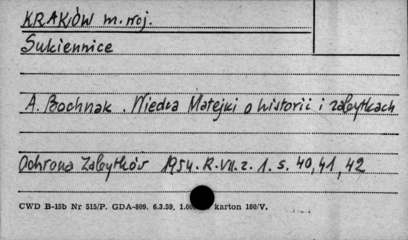 KRAKÓW m. woj.
Sukiennice
A. Bochnak. Wiedza Matejki o historii i zabytkach
Ochrona Zabytków 1954. R. VII. z. 1. s. 40, 41, 42
CWD B-15b Nr 515/P. GDA-809. 6.3.59. karton 180/V.